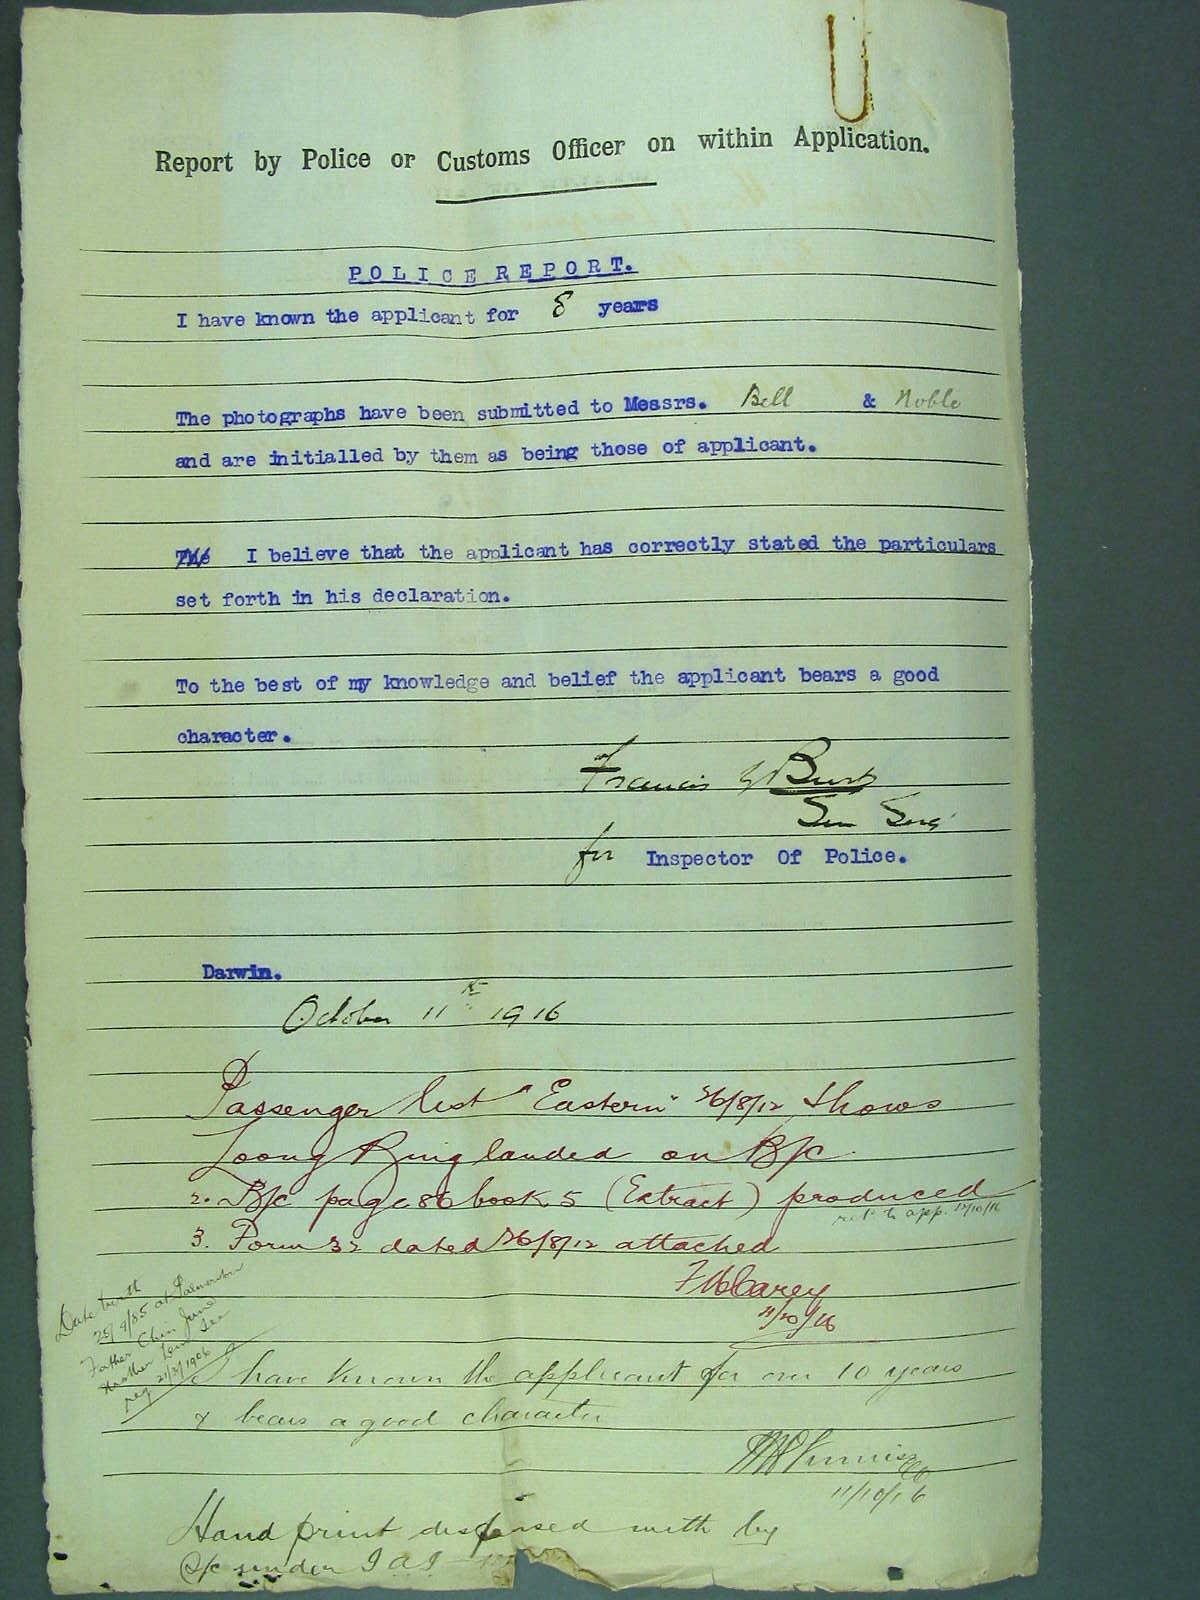 Report by Police or Customs Officer on within Application.
POLICE REPORT.
I have known the applicant for 8 years
The photographs have been submitted to Messrs. Bell & Noble
and are initialled by them as being those of applicant.
The I believe that the applicant has correctly stated the particulars
set forth in his declaration.
To the best of my knowledge and belief the applicant bears a good
character.
Francis G Burt
Sen Serg
for Inspector Of Police.
Darwin.
October 11th 1916
Passenger list "Eastern" 26/8/12 shows
Loong Bing landed on B/c.
2. B/c page 86 book 5 (Extract) produced
ret to app. 12/10/16
3. Form 32 dated 26/8/12 attached
Carey
11/10/16
Date birth
25/9/85 at Palmerston
Father Chin
Mother
reg 21/3/1906
I have known the applicant for over 10 years
& bears a good character
11/10/16
Hand print dispensed with by
C/c under